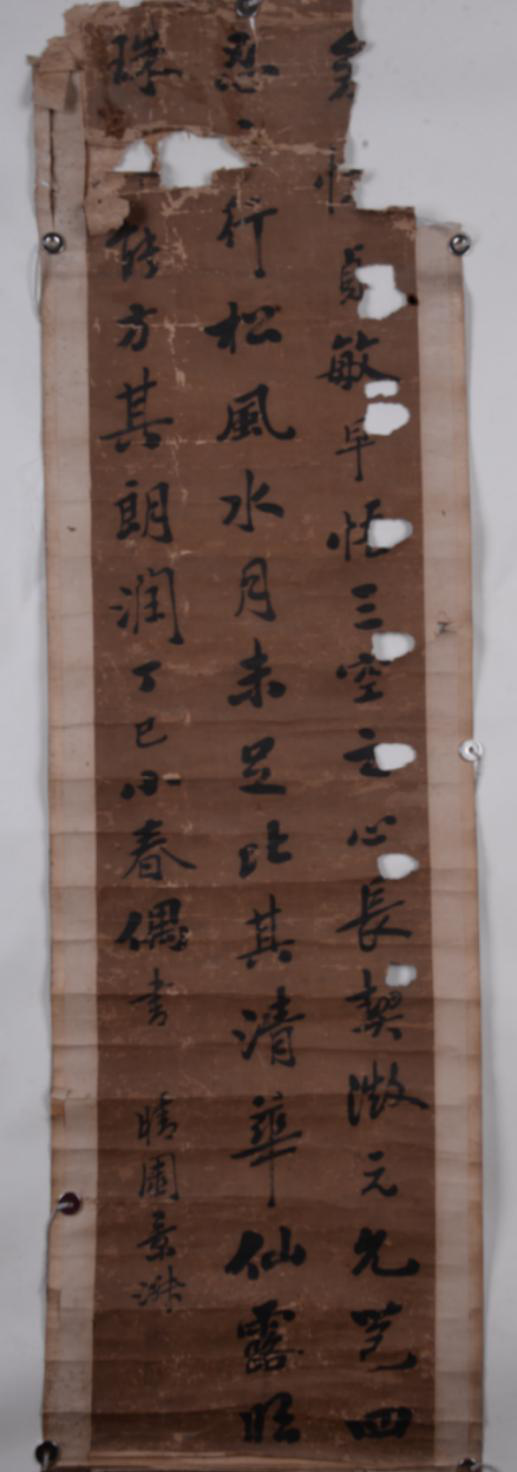 貞敏早悟三空之心長契微元允苞四
忍行松風水月未足比其清華仙露明
珠能方其朗潤丁巳小春偶書
晴園景